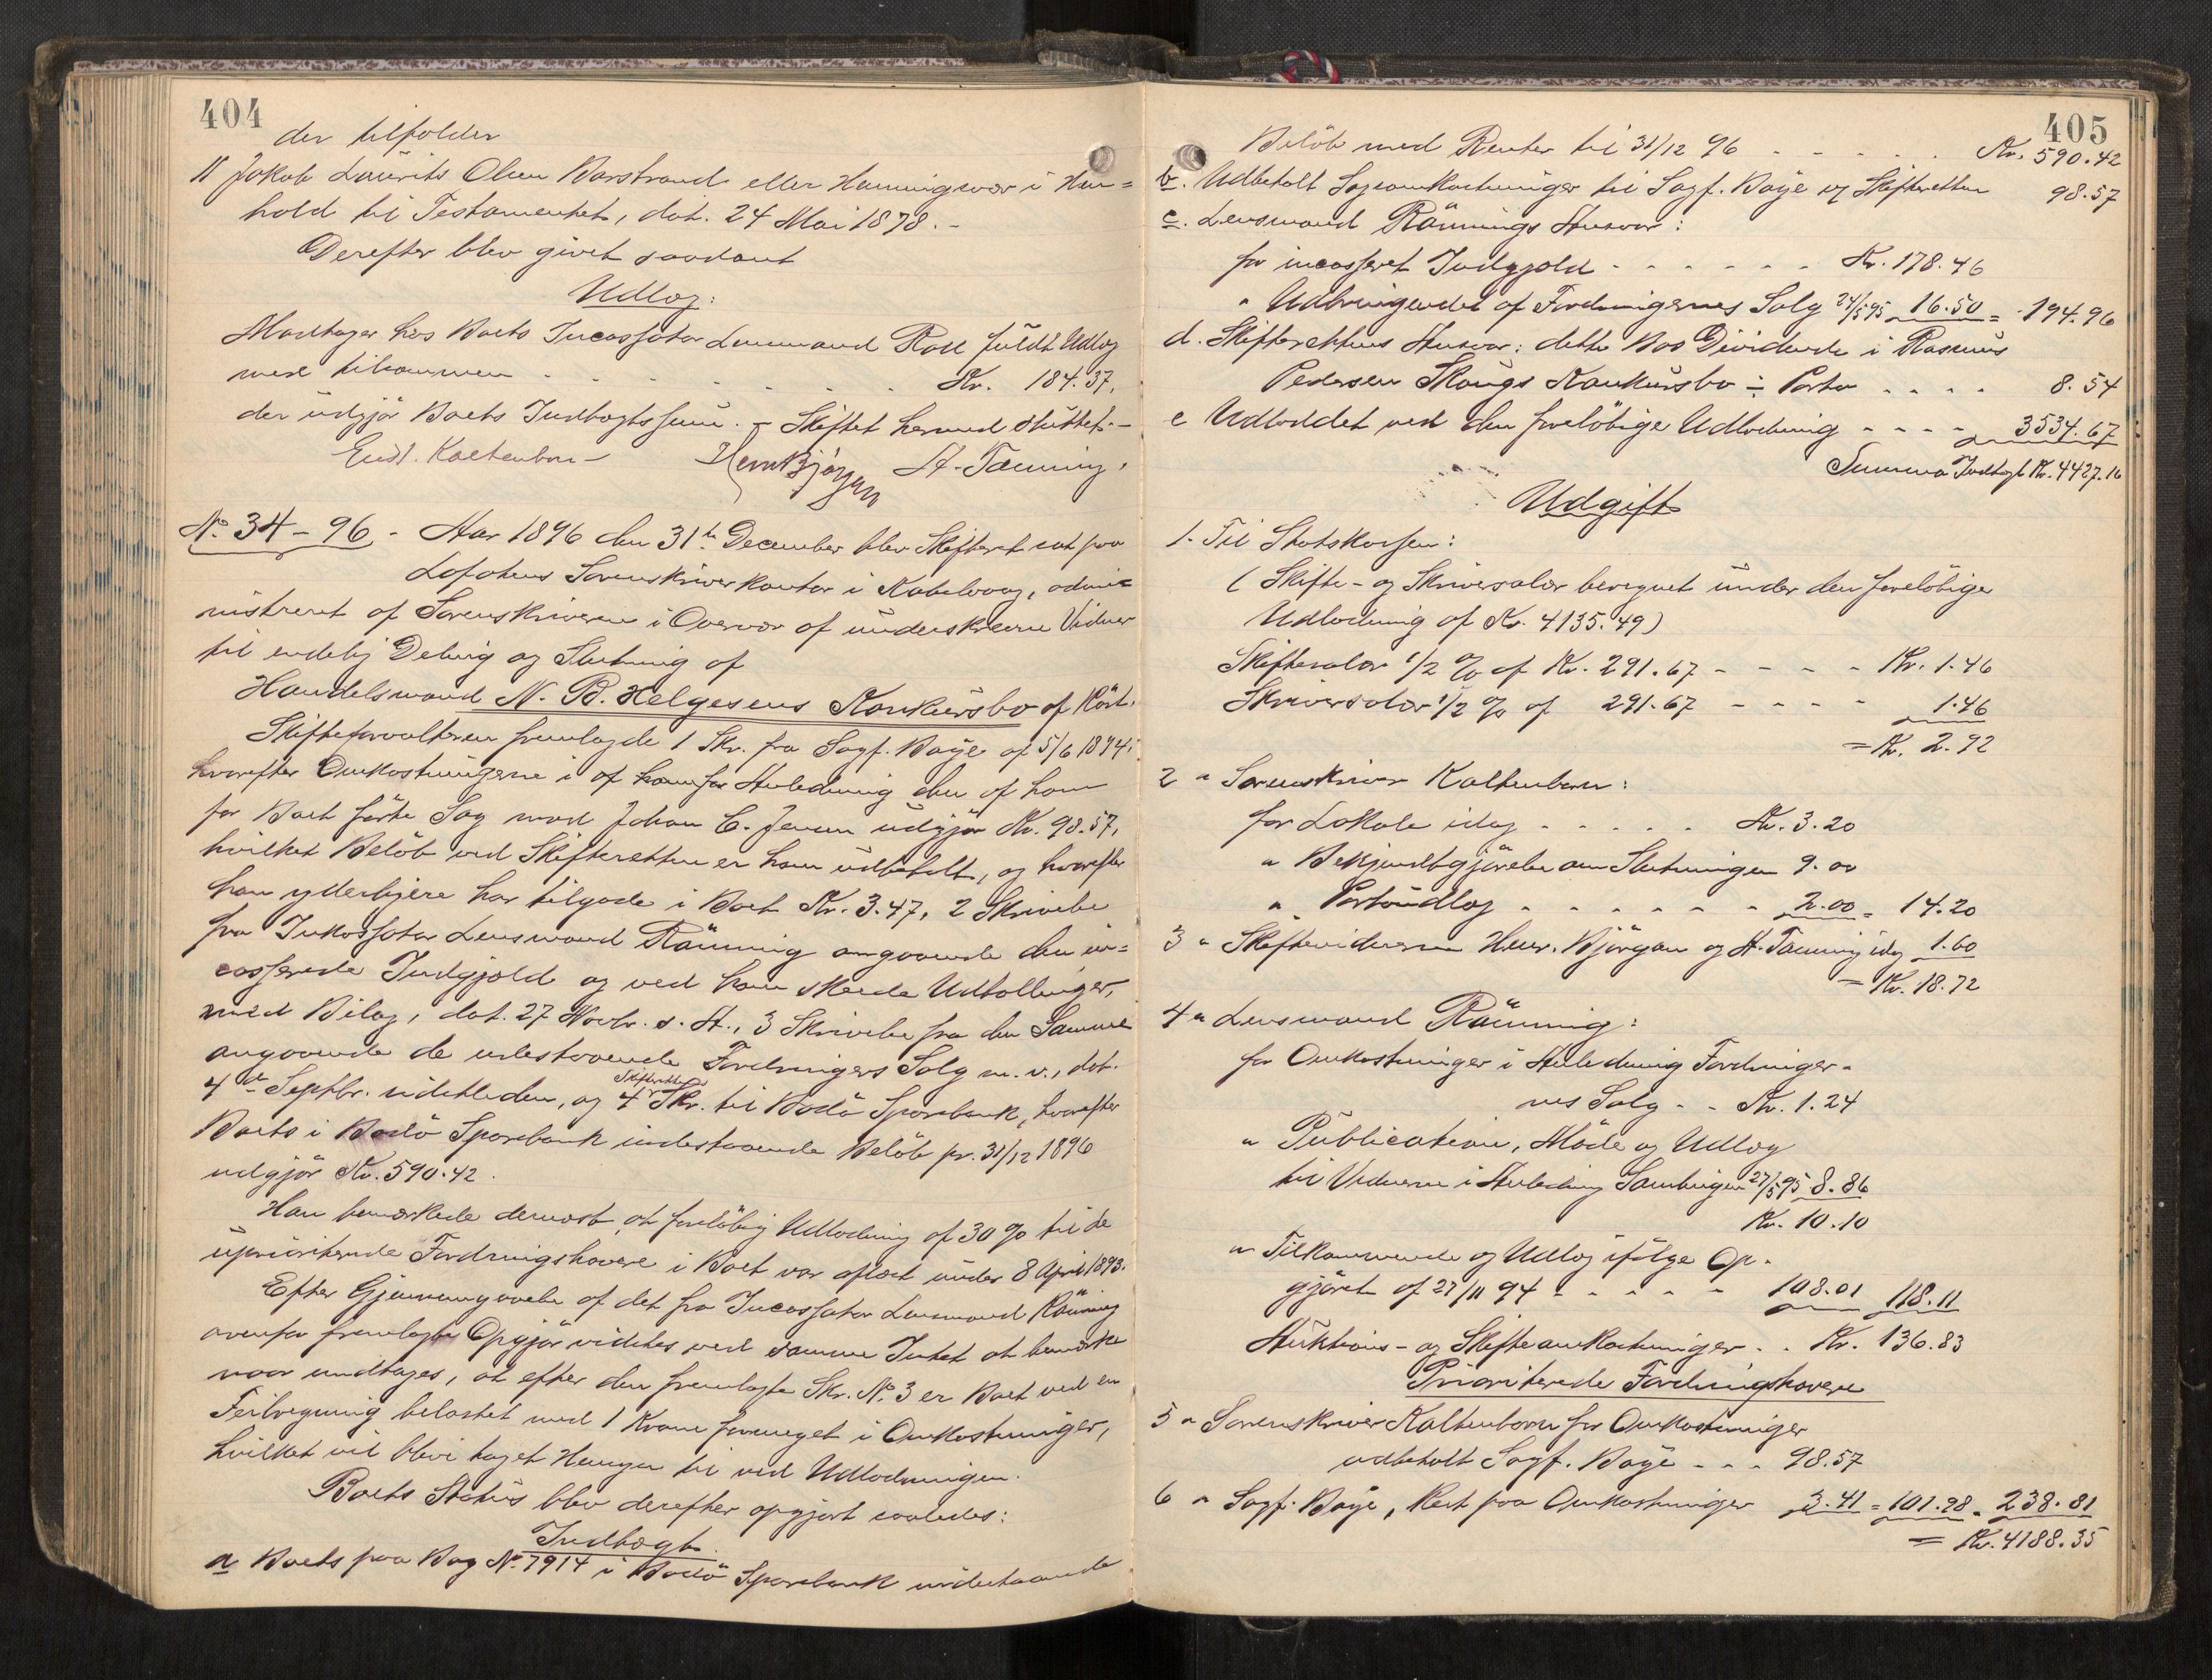 404
der tilfalder
11 Jakob Laurits Olsen Barstrand eller Henningsvær i Hen=
hold til Testamentet, dat. 24 Mai 1878.-
Derefter blev givet saadant
Udlæg:
Modtager hos Boets Incassator Lensmand Roll fuldt Udlæg
med tilkommen - - - - - - Kr. 184.37,
der udgjør Boets Indtægtssum. - Skiftet hermed sluttet.-
Eod. Kaltenborn - HenrBjørgan A. Tænning.
No 34-96. - Aar 1896 den 31te December blev Skifteret sat paa
Lofotens Sorenskriverkontor i Kabelvaag, admi=
nistreret af Sorenskriveren i Overvær af underskrevne Vidner
til endelig Deling og Slutning af
Handelsmand N. B. Helgesens Konkursbo af Røst.
Skifteforvalteren fremlagde 1 Skr. fra Sagf. Bøye af 5/6 1894,
hvorefter Omkostningerne i af ham for Anledning den af ham
for Boet førte Sag mod Johan C. Jensen udgjør Kr. 98.57,
hvilket Beløb ved Skifteretten er ham udbetalt, og hvorefter
han yderligere har tilgode i Boet Kr. 3.47, 2 Skrivelse
fra Inkassator Lensmand Rønning angaaende den in=
casserede Indgjæld og ved ham skeede Udtællinger,
med Bilag, dat. 27 Novbr. s. A., 3 Skrivelse fra den Samme
angaaende de udestaaende Fordringers Salg m. v., dat.
4de Septbr. sidstleden, og 4 Skifterettens Skr. til Bodø Sparebank, hvorefter
Boets i Bodø Sparebank indestaaende Beløb pr. 31/12 1896
udgjør Kr. 590.42.
Han bemærkede dernæst, at foreløbig Udlodning af 30 % til de
uprioriterede Fordringshavere i Boet var afløst under 8 April 1893.
Efter Gjennemgaaelse af det fra Incassator Lensmand Rønning
ovenfor fremlagte Opgjør vidstes ved samme Intet at bemærke
naar undtages, at efter den fremlagte Skr. No. 3 er Boet ved en
Feilregning belastet med 1 Krone formeget i Omkostninger,
hvilket vil blive taget Hensyn til ved Udlodningen.
Boets Status blev derefter opgjort saaledes:
Indtægt.
a Boets paa Bog No. 7914 i Bodø Sparebank indestaaende
405
Beløb med Renter til 31/12 96 - - - - - Kr. 590.42
b. Udbetalt Sagsomkostninger til Sagf. Bøye af Skifteretten 98.57
c. Lensmand Rønnings Ansvar:
for incasseret Indgjæld - - - - - - Kr. 178.46
" Udbringendet af Fordringernes Salg 24/5 95 16.50 = 194.96
d. Skifterettens Ansvar: dette Bos Dividende i Rasmus
Pedersen Skougs Konkursbo ÷ Porto - - - - 8.54
e Udloddet ved den foreløbige Udlodning - - - - 3534.67
Summa Indtægt Kr. 4427.16
Udgift
1. Til Statskassen:
(Skifte- og Skriversalær beregnet under den foreløbige
Udlodning af Kr. 4135.49)
Skiftesalær 1/2 % af Kr. 291.67 - - - - Kr. 1.46
Skriversalær 1/2 % af 291.67 - - - - 1.46
= Kr. 2.92
2 " Sorenskriver Kaltenborn:
for Lokale idag - - - - - Kr. 3.20
" Bekjendtgjørelse om Slutningen 9.00
" Portoudlæg - - - - - - 2.00 = 14.20
3 " Skiftevidnerne Henr. Bjørgan og A. Tænning idag 1.60
= Kr. 18.72
4 " Lensmand Rønning:
for Omkostninger i Anledning Fordringer-
nes Salg - - Kr. 1.24
" Publication, Møde og Udlæg
til Vidnerne i Anledning Samlingen 27/5 95 8.86
Kr. 10.10
" Tilkommende og Udlæg ifølge Op-
gjøret af 27/11 94 - - - - - 108.01 118.11
Auktions- og Skifteomkostninger - . Kr. 136.83
Prioriterede Fordringshavere
5 " Sorenskriver Kaltenborn for Omkostninger
udbetalt Sagf. Bøye - - - 98.57
6 " Sagf. Bøye, Rest paa Omkostninger 3.41 = 101.98 = 238.81
= Kr. 4188.35